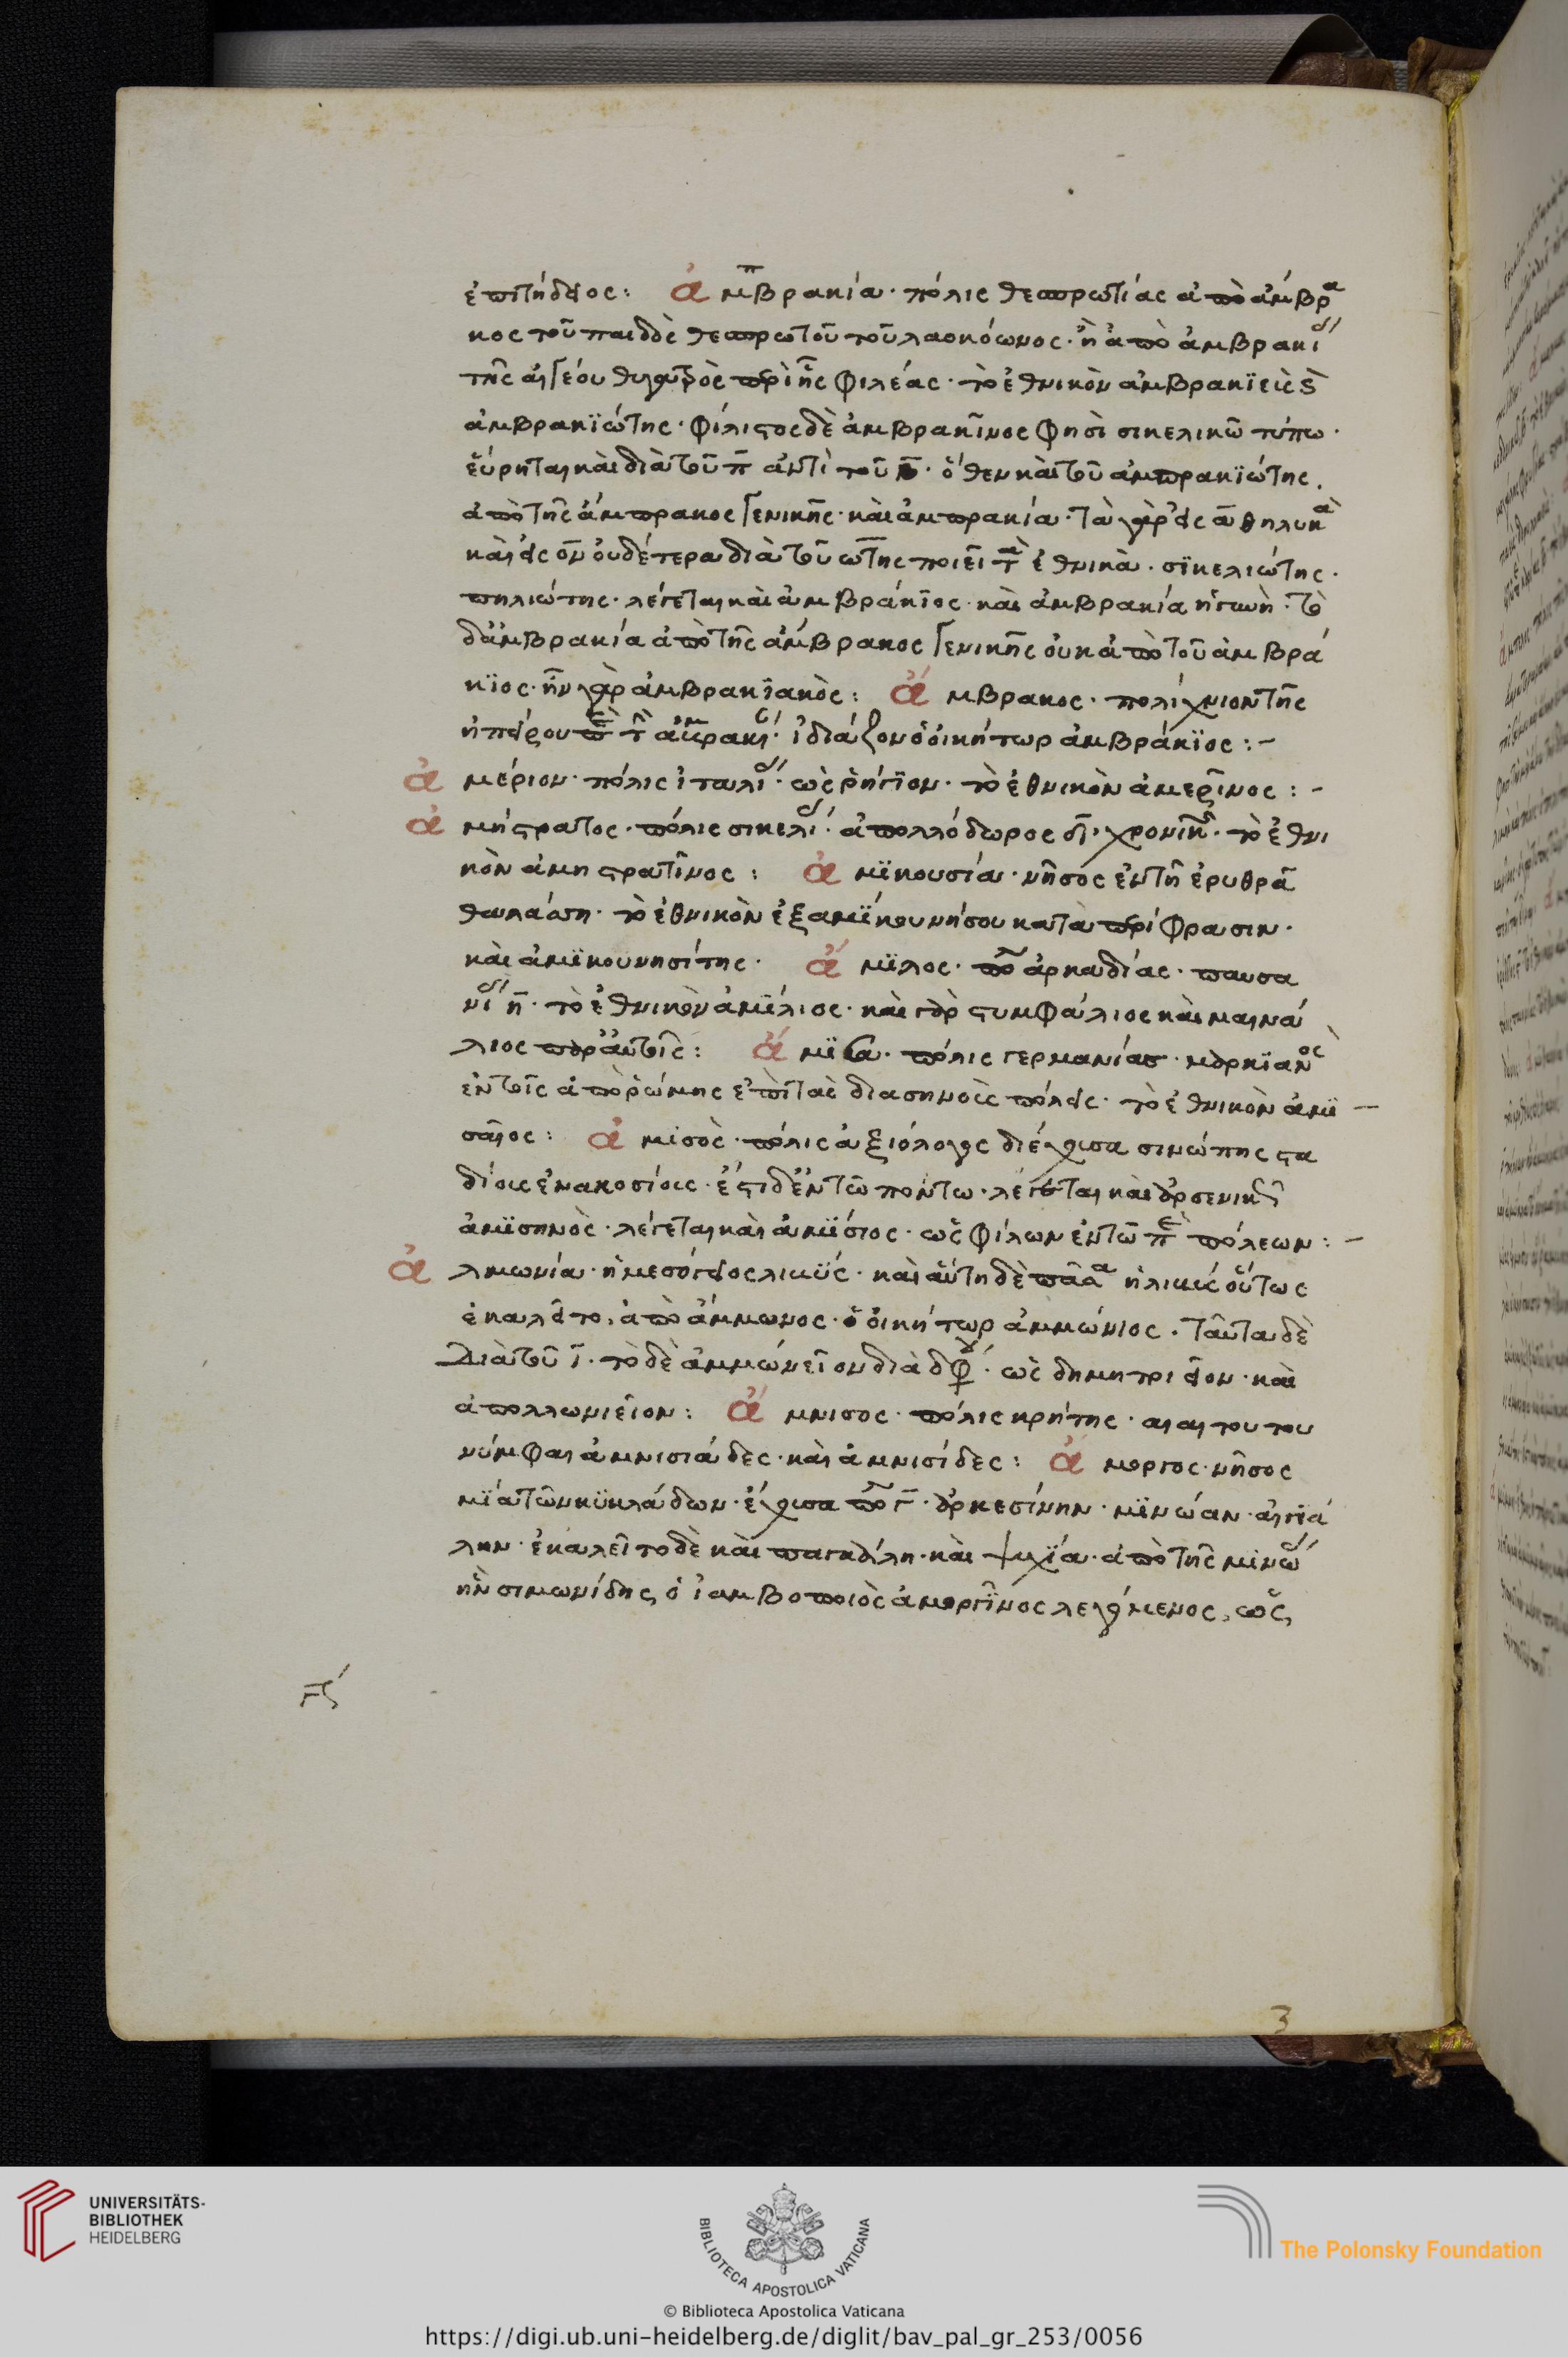 ἐπιτήδειος: ἀμβρακία· πόλις θεσπρωτίας ἀπὸ ἀμβρα
κος τοῦ παιδὸς θεσπρωτοῦ τοῦ λαοκόωνος· ἢ ἀπὸ ἀμβρακί
τῆς αὐγέου θυγατρὸς περὶ ἧς φιλέας· τὸ ἐθνικὸν ἀμβρακϊεὺς
ἀμβρακϊώτης· φίλιστος δὲ ἀμβρακῖνος φησὶ σικελικῶ τύπω·
εὕρηται καὶ διὰ τοῦ π ἀντὶ τοῦ β· ὅθεν καὶ τοῦ ἀμπρακϊώτης.
ἀπὸ τῆς ἄμπρακος γενικῆς· καὶ ἀμπρακία· τὰ γὰρ εἰς α θηλυκὰ
καὶ εἰς ον οὐδέτερα διὰ τοῦ ωτης ποιεῖ τὰ ἐθνικὰ· σϊκελιώτης·
πηλιώτης· λέγεται καὶ ἀμβράκϊος· καὶ ἀμβρακία ἡ γυνὴ· τὸ
δ ἀμβρακία ἀπὸ τῆς ἄμβρακος γενικῆς οὐκ ἀπὸ τοῦ ἀμβρά
κϊος· ἦν γὰρ ἀμβρακϊανὸς: ἄμβρακος· πολίχνιον τῆς
ἠπείρου ἰδιάζον ὁ οἰκήτωρ ἀμβράκϊος:-
ἀμέριον· πόλις ἰταλί· ὡς ῥήγϊον· τὸ ἐθνικὸν ἀμερῖνος:-
ἀμήστρατος· πόλις σικελί· ἀπολλόδωρος χρονικ· τὸ ἐθνι
κὸν ἀμηστρατῖνος: ἀμϊκουσία· νῆσος ἐν τῆ ἐρυθρᾶ
θαλάσση· τὸ ἐθνικὸν ἐξ ἀμϊκου νήσου κατὰ περίφρασιν·
καὶ ἀμϊκουνησίτης· ἄμϊλος· ἀρκαδίας· παυσα
νί η· τὸ ἐθνικὸν ἀμϊλιος· καὶ γὰρ στυμφάλιος καὶ μαινά
λιος παρ αὐτοῖς: ἄμϊσα· πόλις γερμανίας· μαρκϊανὸς
ἐν τοῖς ἀπὸ ῥώμης ἐπὶ τὰς διασήμους πόλεις· τὸ ἐθνικὸν ἀμϊ
σαῖος: ἀμισὸς· πόλις ἀξιόλογος διέχουσα σινώπης στα
δίοις ἐνακοσίοις· ἔστι δ ἐν τῶ πόντω· λέγεται καὶ ἀρσενικῶς
ἀμϊσηνὸς· λέγεται καὶ ἀμϊσιος· ὡς φίλων ἐν τῶ πόλεων:-
ἀλμωνία· ἡ μεσόγειος λιϋς· καὶ αὕτη δὲ πᾶσα ἡ λιυη οὕτως
ἐκαλεῖτο, ἀπὸ ἄμμωνος· ὁ οἰκήτωρ ἀμμώνιος. ταῦτα δὲ
διὰ τοῦ ι· τὸ δὲ ἀμμώνεῖον διὰ διφ· ὡς δημητριεῖον· καὶ
ἀπολλωνιεῖον: ἄμνισος· πόλις κρήτης· αἱ αι τούτου
νύμφαι ἀμνισιάδες· καὶ ἀμνισίδες: ἀμοργος· νῆσος
μία τῶν κϋκλάδων· ἔχουσα γ· ἀρκεσίνην· μϊνώαν· αἰγιά
λην· ἐκαλεῖτο δὲ καὶ παγκάλη· καὶ ψυχία· ἀπὸ τῆς μϊνώ
ἦν σιμωνίδης, ὁ ἰαμβοποιὸς ἀμοργῖνος λεγόμενος, ὡς,
3
UNIVERSITÄTS-
BIBLIOTHEK
HEIDELBERG
BIBLIOTECA APOSTOLICA VATICANA
The Polonsky Foundation
© Biblioteca Apostolica Vaticana
https://digi.ub.uni-heidelberg.de/diglit/bav_pal_gr_253/0056